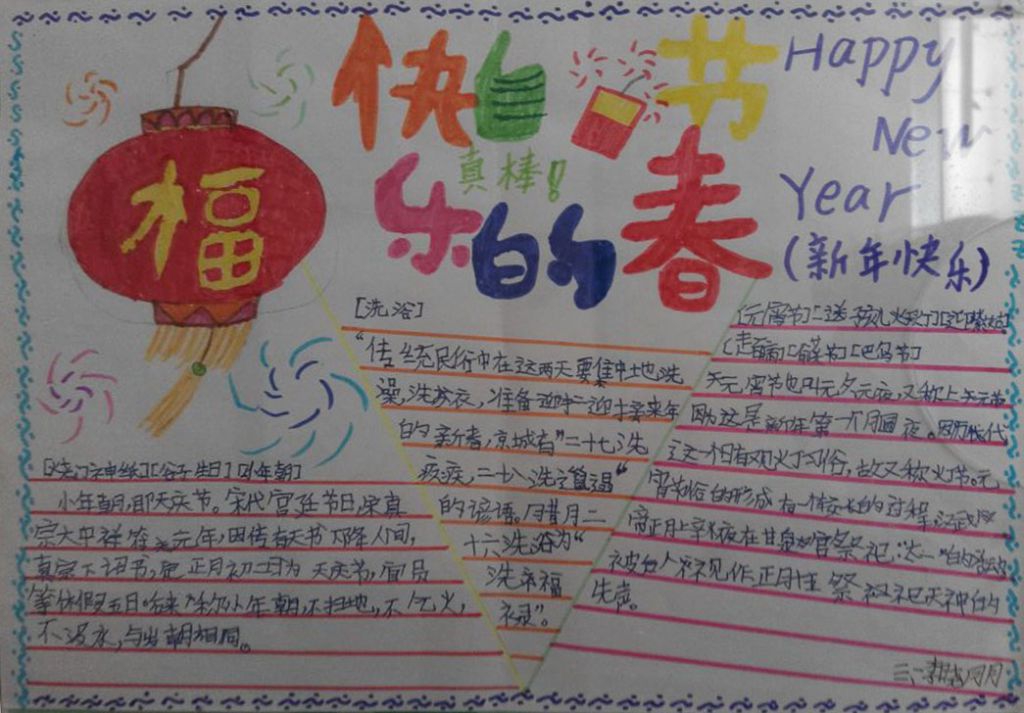 福
快 节
乐的春
真棒!
Happy
New
Year
(新年快乐)
[洗浴]
"传统民俗中在这两天要集中地洗
澡,洗衣,准备迎接来年
的新春,京城有"二十七洗
疚疾,二十八洗邋遢"
的谚语。腊月二
十六洗浴为"
洗福
禄"。
[烧门神纸][谷子生日][小年朝]
小年朝,即天庆节。宋代宫廷节日,宋真
宗大中祥符元年,因传有天书下降人间,
真宗下诏书,定正月初三日为天庆节,官员
等休假五日。后来称小年朝,不扫地,不乞火,
不汲水,与岁朝相同。
[元宵节][送孩儿灯][迎紫姑]
[走百病]
元宵节也叫元夕元夜,又称上元节
因为这是新年第一个月圆夜。因历代
这一节日有观灯习俗,故又称灯节。元
宵节俗的形成有一个较长的过程,汉武
帝正月上辛夜在甘泉宫祭祀"太一"的活动
被后人视作正月 祭祀天神的
先声。